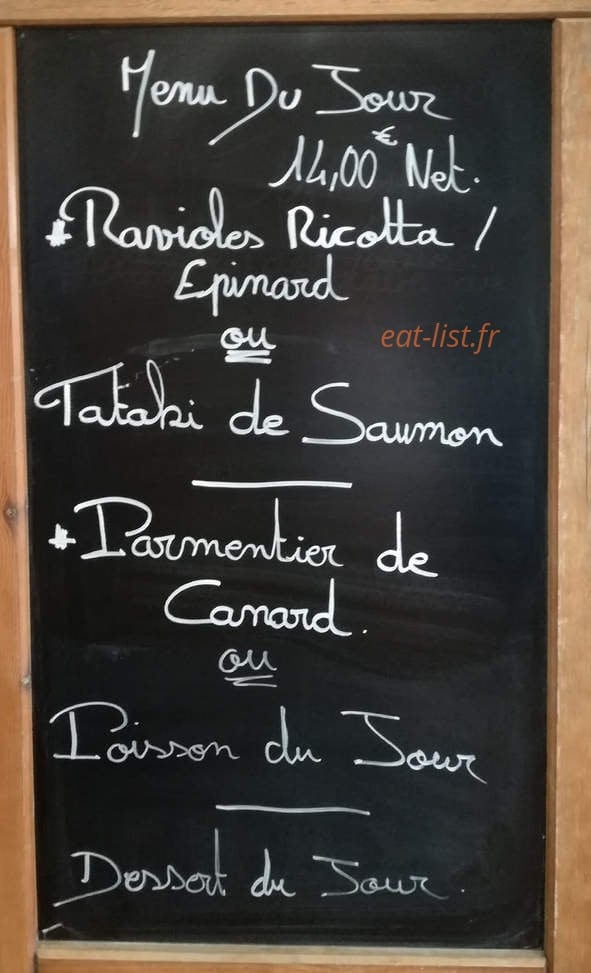 Menu Du Jour
14,00€ Net.
* Ravioles Ricotta /
Epinard
ou
eat-list.fr
Tataki de Saumon
* Parmentier de
Canard.
ou
Poisson du Jour
Dessert du Jour.